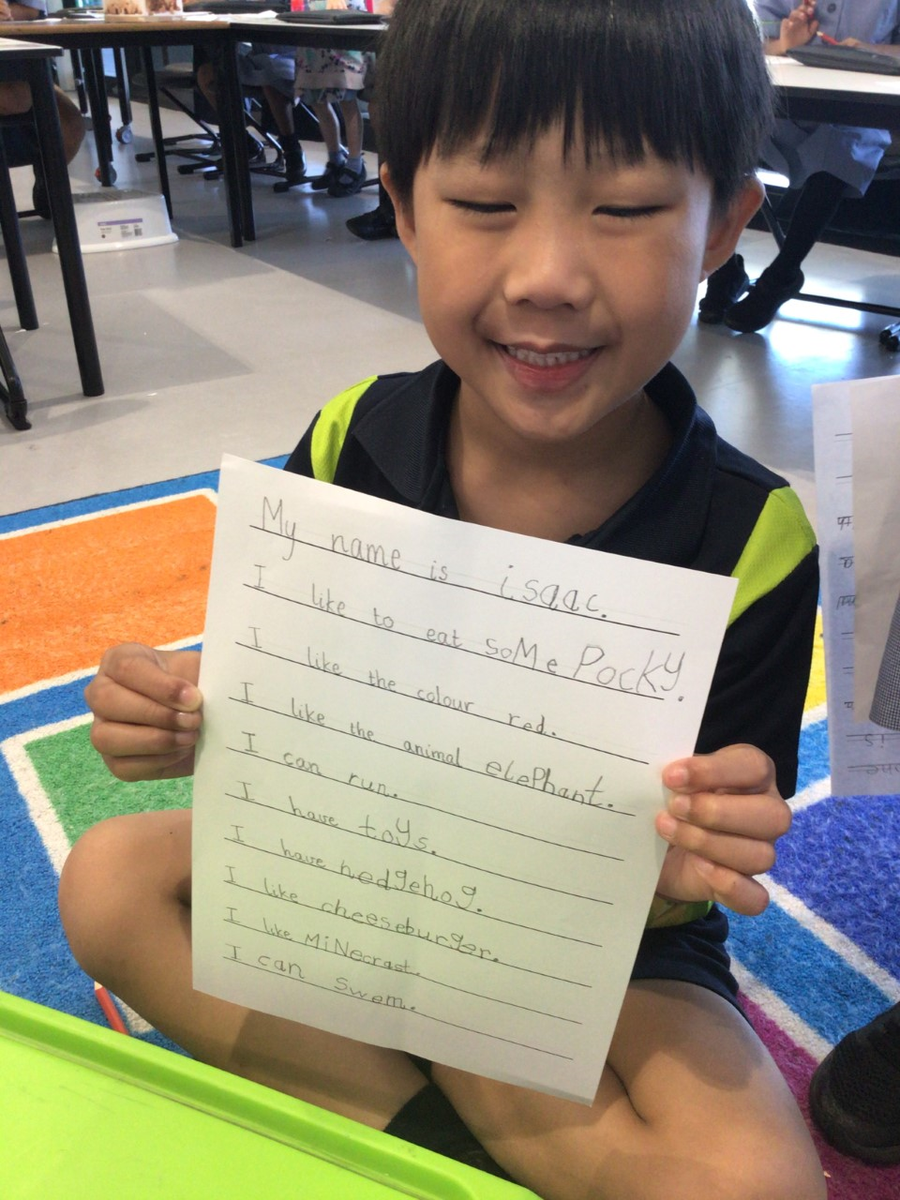 My name is isaac.
I like to eat soMe PocKy.
I like the colour red.
I like the animal elePhant.
I can run.
I have toys.
I have hedgehog.
I like cheeseburger.
I like MiNecrast.
I can swem.